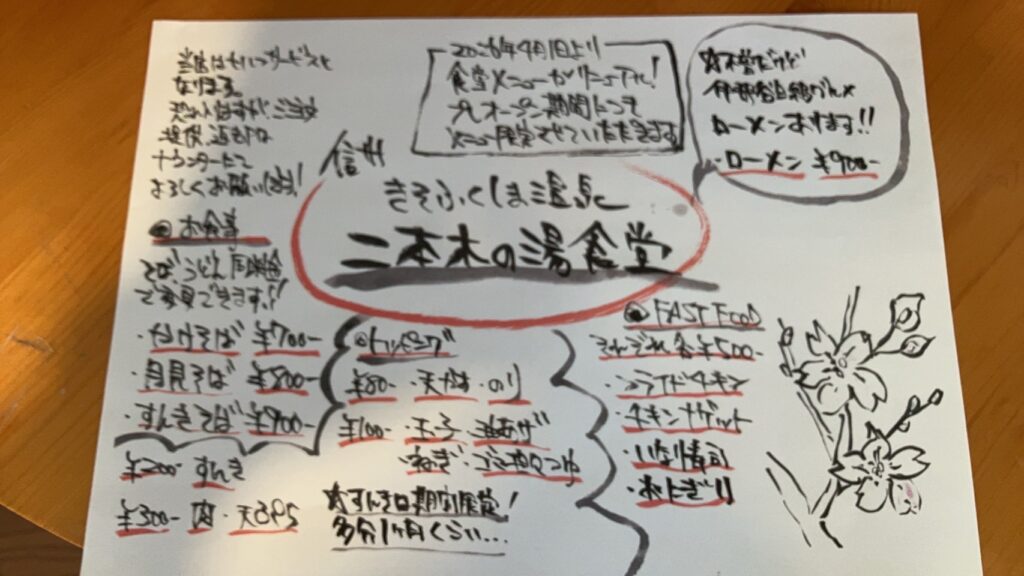 当店はセルフサービスと
なります
恐れ入りますが、ご注文
提供、返却は
カウンターにて
よろしくお願いします!
2026年4月1日より
食堂メニューがリニューアル!
プレオープン期間につき
メニュー限定させていただきます
伊那名物
ローメンあります!!
・ローメン ¥900-
信州
きそふくしま温泉
二本木の湯食堂
◉お食事
そば、うどん 同料金
で変更できます!!
・かけそば ¥700-
・月見そば ¥800-
・すんきそば ¥900-
◉トッピング
¥80- ・天かす・のり
¥100- ・玉子 油あげ
・ねぎ・
¥200- すんき
¥300- 肉・天ぷら
☆すんきは期間限定!
多分1ヶ月くらい…
◉FAST FOOD
それぞれ各¥500-
・フライドチキン
・チキンナゲット
・いなり寿司
・おにぎり